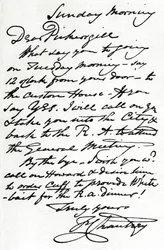 Sunday Morning
Dear Pickersgill
What say you to going
on Tuesday morning - say
12 o'clock from your door - to
the Custom House - If you
say YES. I will call on you
& take you into the City &
back to the R.A. to attend
the General Meeting -
By the bye - I wish you wd.
call on Howard & desire him
to order Cuff to provide White
-bait for the R.A. dinner!
Truly yours